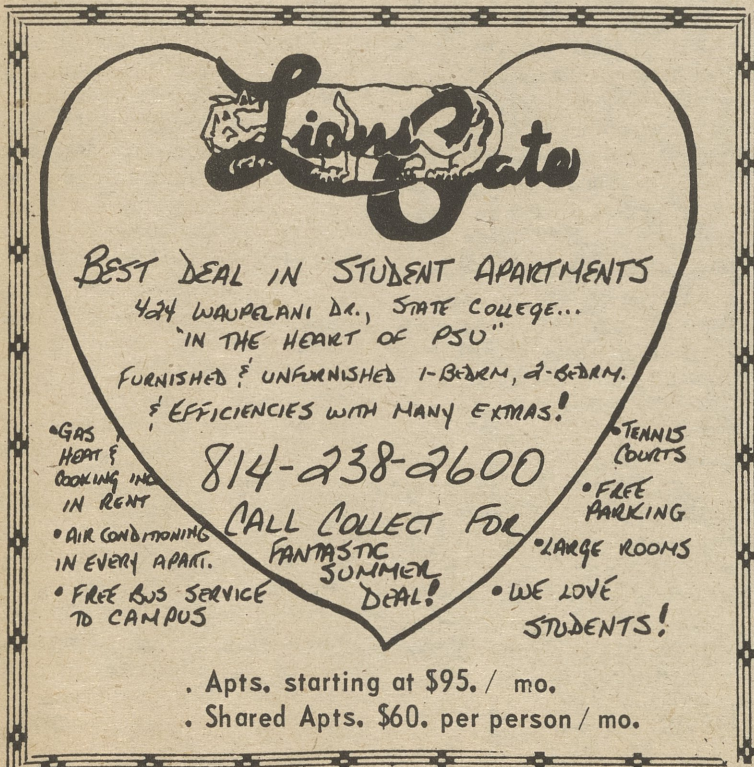 Lions Gate
BEST DEAL IN STUDENT APARTMENTS
424 WAUPELANI DR., STATE COLLEGE...
"IN THE HEART OF PSU"
FURNISHED & UNFURNISHED 1-BEDRM, 2-BEDRM.
& EFFICIENCIES WITH MANY EXTRAS!
814-238-2600
CALL COLLECT FOR
FANTASTIC
SUMMER
DEAL!
•GAS
HEAT &
COOKING INC
IN RENT
•AIR CONDITIONING
IN EVERY APART.
• FREE BUS SERVICE
TO CAMPUS
•TENNIS
COURTS
•FREE
PARKING
•LARGE ROOMS
•WE LOVE
STUDENTS!
. Apts. starting at $95. / mo.
. Shared Apts. $60. per person / mo.